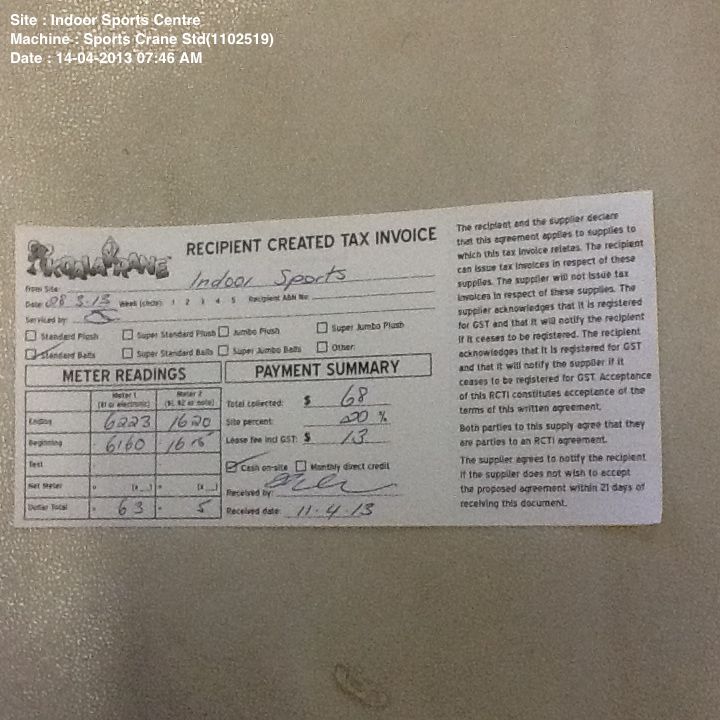 Site : Indoor Sports Centre
Machine : Sports Crane Std(1102519)
Date : 14-04-2013 07:46 AM
KOALA KRANE
RECIPIENT CREATED TAX INVOICE
From Site: Indoor Sports
Date: 28 3-13 Week (circle): 1 2 3 4 5 Recipient ABN No:
Serviced by:
Standard Plush Super Standard Plush Jumbo Plush Super Jumbo Plush
Standard Balls Super Standard Balls Super Jumbo Balls Other:
METER READINGS
Meter 1 Meter 2
($1 or electronic) ($1, $2 or note)
Ending 6223 1620
Beginning 6160 1615
Test
Net Meter
Dollar Total 63 5
PAYMENT SUMMARY
Total collected: $ 68
Site percent: 20 %
Lease fee incl GST: $ 13
Cash on-site Monthly direct credit
Received by:
Received date: 11-4-13
The recipient and the supplier declare
that this agreement applies to supplies to
which this tax invoice relates. The recipient
can issue tax invoices in respect of these
supplies. The supplier will not issue tax
invoices in respect of these supplies. The
supplier acknowledges that it is registered
for GST and that it will notify the recipient
if it ceases to be registered. The recipient
acknowledges that it is registered for GST
and that it will notify the supplier if it
ceases to be registered for GST. Acceptance
of this RCTI constitutes acceptance of the
terms of this written agreement.
Both parties to this supply agree that they
are parties to an RCTI agreement.
The supplier agrees to notify the recipient
if the supplier does not wish to accept
the proposed agreement within 21 days of
receiving this document.